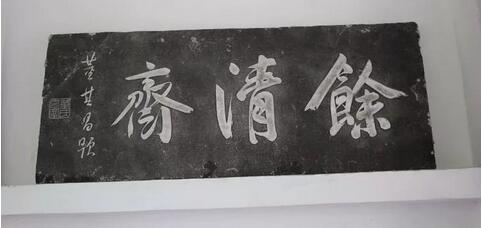 餘清齋
董其昌題